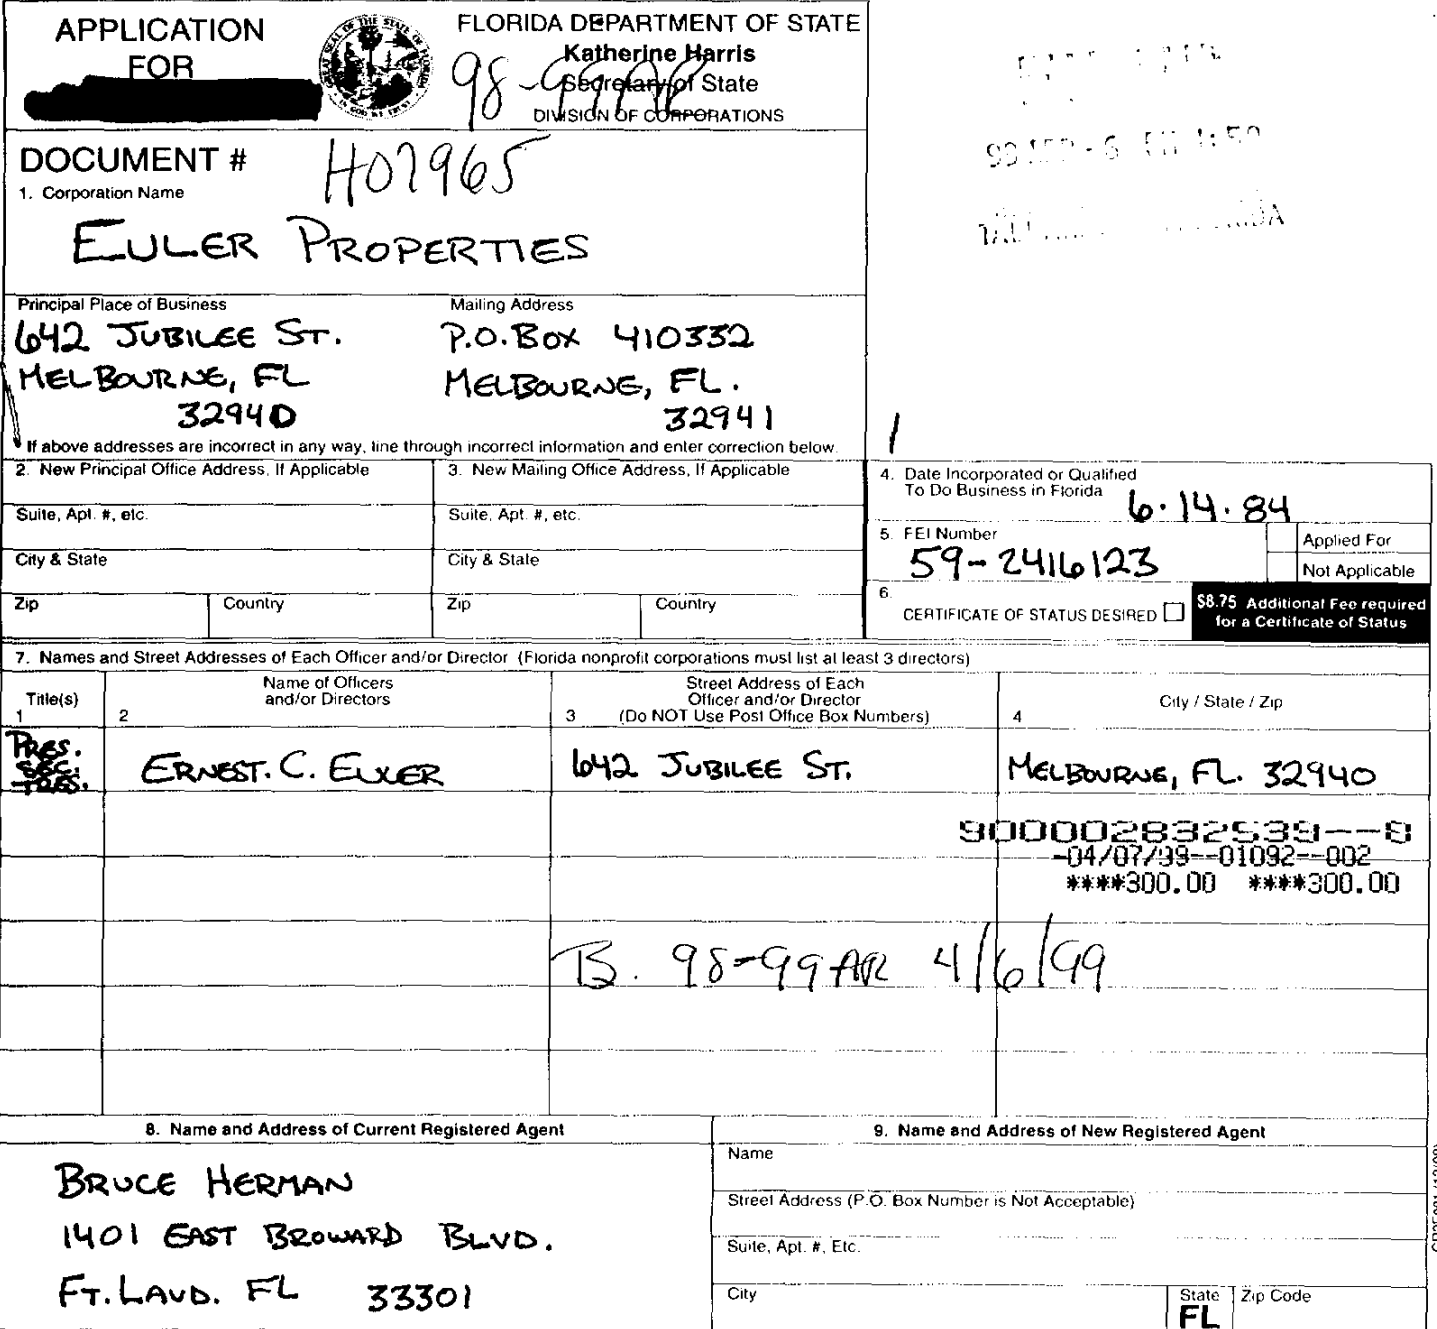 APPLICATION
FOR
FLORIDA DEPARTMENT OF STATE
Katherine Harris
Secretary of State
DIVISION OF CORPORATIONS
98-99AR
DOCUMENT # H07965
1. Corporation Name
EULER PROPERTIES
Principal Place of Business Mailing Address
642 JUBILEE ST. P.O. BOX 410332
MELBOURNE, FL MELBOURNE, FL.
32940 32941
If above addresses are incorrect in any way, line through incorrect information and enter correction below.
2. New Principal Office Address, If Applicable 3. New Mailing Office Address, If Applicable
Suite, Apt. #, etc. Suite, Apt. #, etc.
City & State City & State
Zip Country Zip Country
4. Date Incorporated or Qualified
To Do Business in Florida 6.14.84
5. FEI Number
59-2416123
Applied For
Not Applicable
6.
CERTIFICATE OF STATUS DESIRED
$8.75 Additional Fee required
for a Certificate of Status
7. Names and Street Addresses of Each Officer and/or Director (Florida nonprofit corporations must list at least 3 directors)
Title(s)
1
Name of Officers
and/or Directors
2
Street Address of Each
Officer and/or Director
3 (Do NOT Use Post Office Box Numbers)
City / State / Zip
4
PRES.
SEC.
TRES.
ERNEST. C. EULER 642 JUBILEE ST. MELBOURNE, FL. 32940
900002832539--8
-04/07/99--01092--002
****300.00 ****300.00
B. 98-99AR 4/6/99
8. Name and Address of Current Registered Agent
BRUCE HERMAN
1401 EAST BROWARD BLVD.
FT. LAUD. FL 33301
9. Name and Address of New Registered Agent
Name
Street Address (P.O. Box Number is Not Acceptable)
Suite, Apt. #, Etc.
City State Zip Code
FL